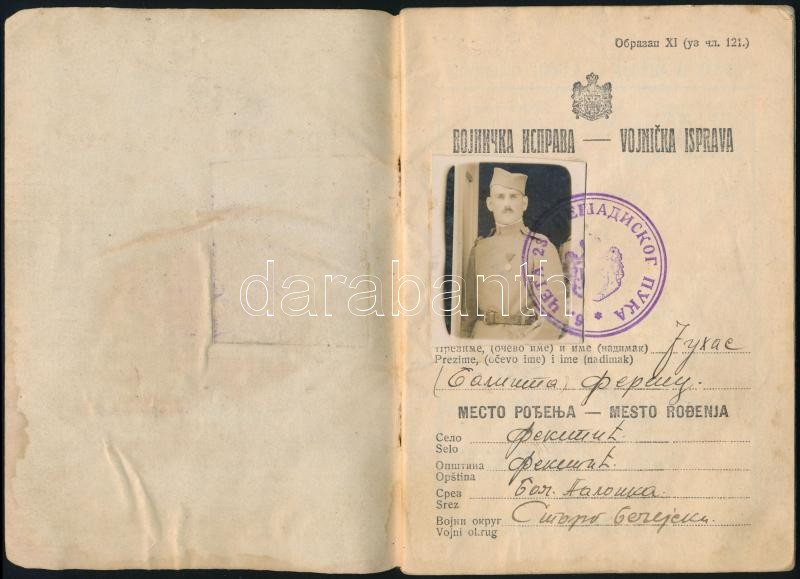 Образац XI (уз чл. 121.)
ВОЈНИЧКА ИСПРАВА — VOJNIČKA ISPRAVA
6. ЧЕТА 23 ПЕШАДИСКОГ ПУКА *
darabanth
Презиме, (очево име) и име (надимак) Јухас
Prezime, (očevo ime) i ime (nadimak)
(Балинта) Ференц.
МЕСТО РОЂЕЊА — MESTO ROĐENJA
Село Фекетић.
Selo
Општина Фекетић.
Opština
Срез Бач. Палошка.
Srez
Војни округ Старо Бечејски.
Vojni ol.rug